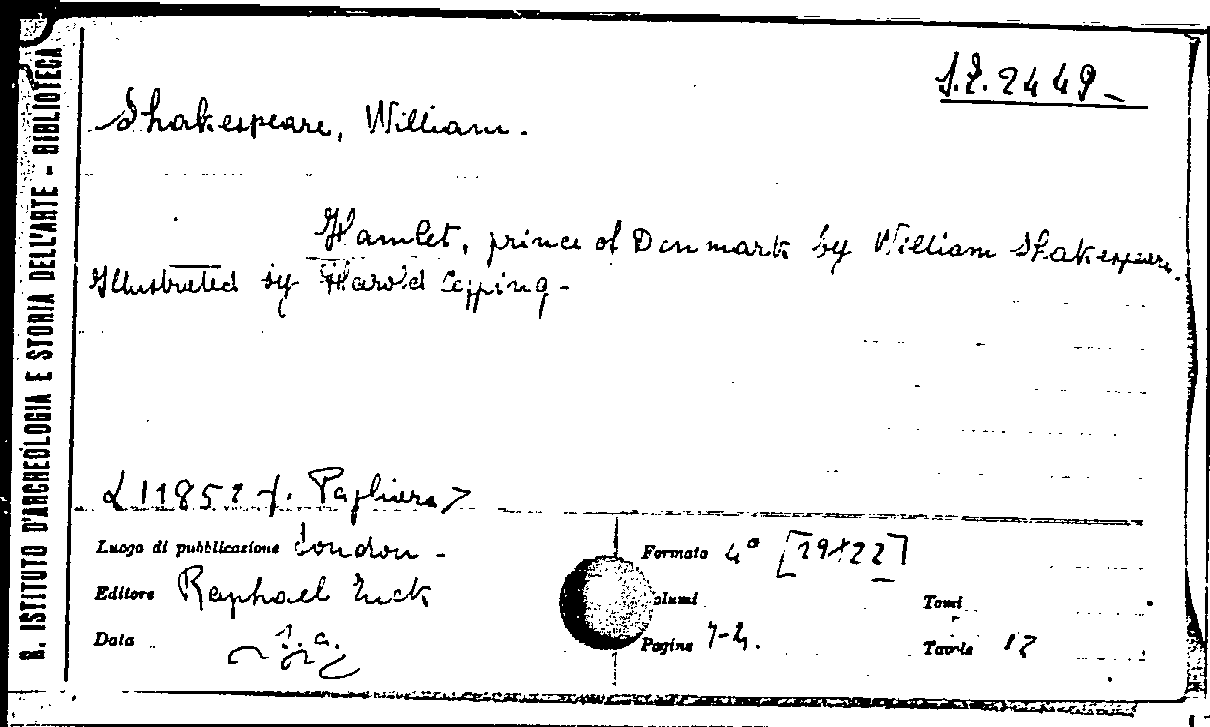 R. ISTITUTO D'ARCHEOLOGIA E STORIA DELL'ARTE - BIBLIOTECA
S.Z. 2449_
Shakespeare, William.
Hamlet, prince of Denmark by William Shakespeare.
Illustrated by Harold Copping -
Luogo di pubblicazione London -
Formato 4° [29x22]
Editore Raphael Tuck
Volumi
Tomi
Data s.a.
Pagine
Tavole 12